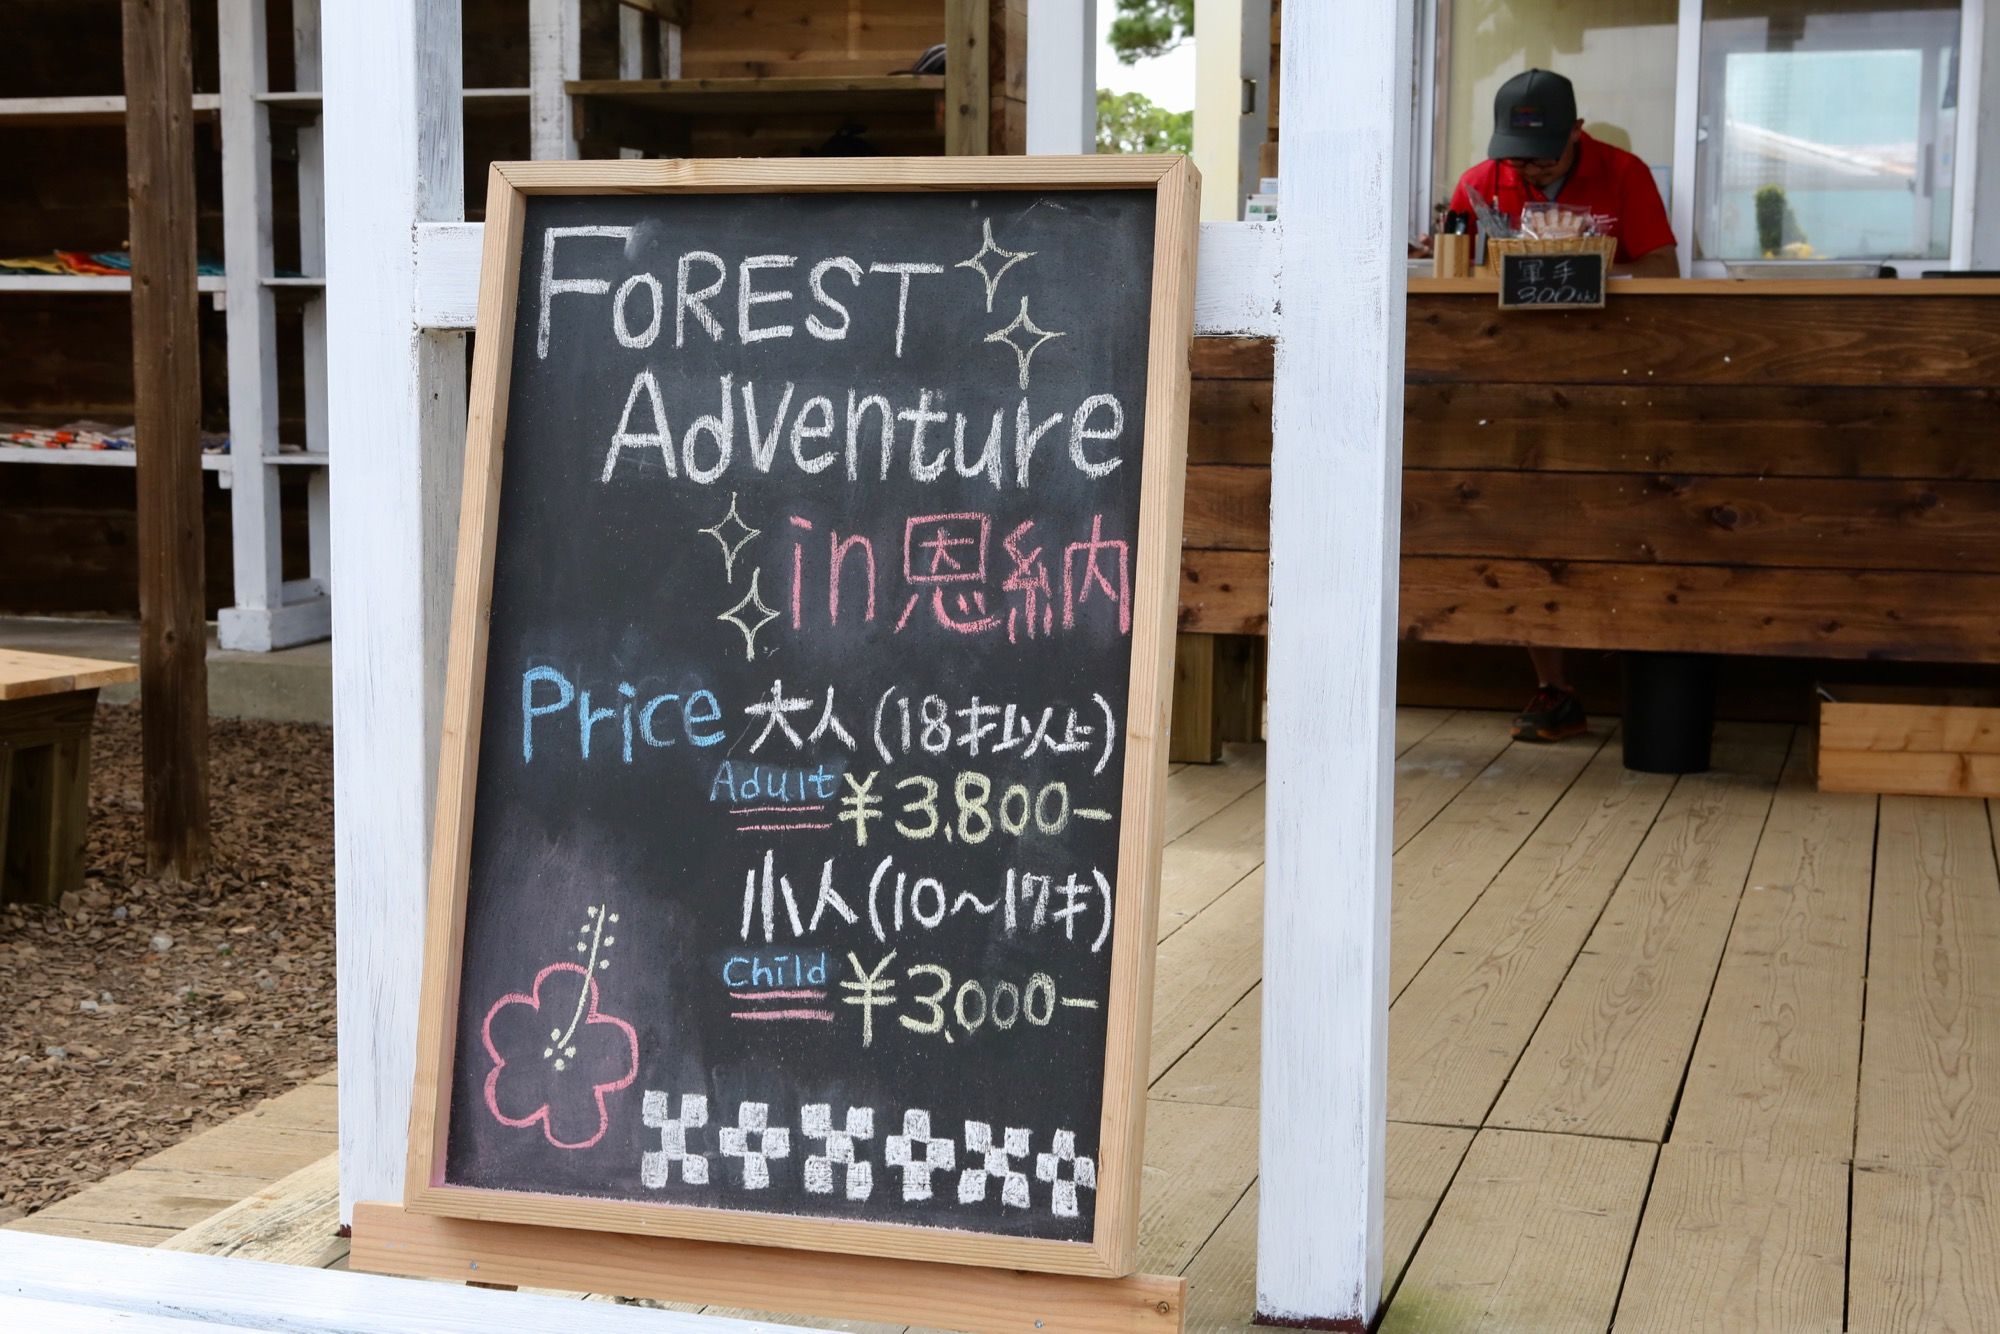 FOREST
Adventure
in恩納
Price 大人 (18才以上)
Adult ¥3,800-
小人 (10〜17才)
Child ¥3,000-
軍手
300